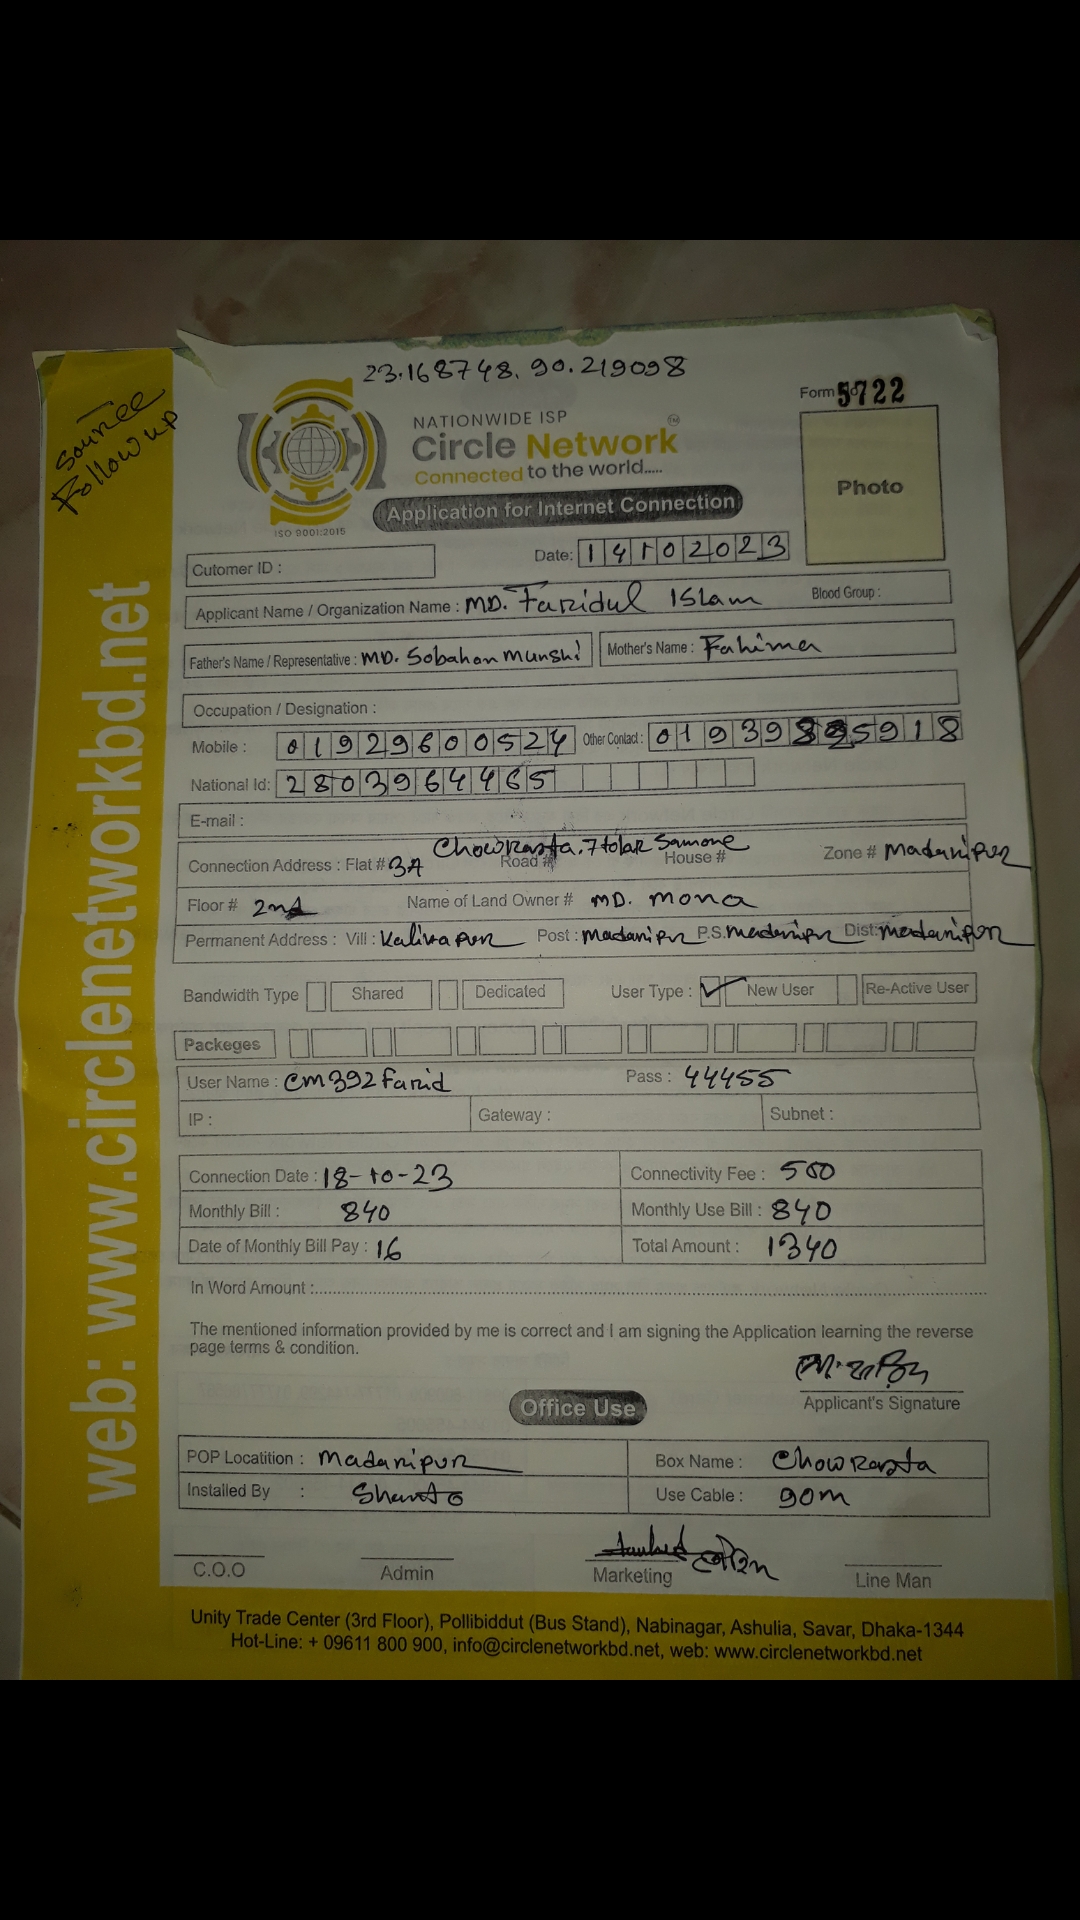 23.168748, 90.219098
Source
Follow up
Form 5722
NATIONWIDE ISP
Circle Network
TM
Connected to the world.....
ISO 9001:2015
Application for Internet Connection
Photo
Cutomer ID :
Date: 14102023
Applicant Name / Organization Name : MD. Faridul Islam Blood Group :
Father's Name / Representative : MD. Sobahan Munshi Mother's Name : Fahima
Occupation / Designation :
Mobile : 01929600524 Other Contact : 01939 5918
National Id: 2803964465
E-mail :
Chowrasta. 7 tolar Samone
Connection Address : Flat # 3A Road # House # Zone # Madaripur
Floor # 2nd Name of Land Owner # MD. Mona
Permanent Address : Vill : Post : Madaripur P.S. Madaripur Dist: Madaripur
Bandwidth Type Shared Dedicated User Type : ✓ New User Re-Active User
Packeges
User Name : cm392farid Pass : 44455
IP : Gateway : Subnet :
Connection Date : 18-10-23 Connectivity Fee : 500
Monthly Bill : 840 Monthly Use Bill : 840
Date of Monthly Bill Pay : 16 Total Amount : 1340
In Word Amount :
The mentioned information provided by me is correct and I am signing the Application learning the reverse
page terms & condition.
Applicant's Signature
Office Use
POP Locatition : Madaripur Box Name : Chowrasta
Installed By : Shanto Use Cable : 90m
C.O.O Admin Marketing Line Man
Unity Trade Center (3rd Floor), Pollibiddut (Bus Stand), Nabinagar, Ashulia, Savar, Dhaka-1344
Hot-Line: + 09611 800 900, info@circlenetworkbd.net, web: www.circlenetworkbd.net
web: www.circlenetworkbd.net